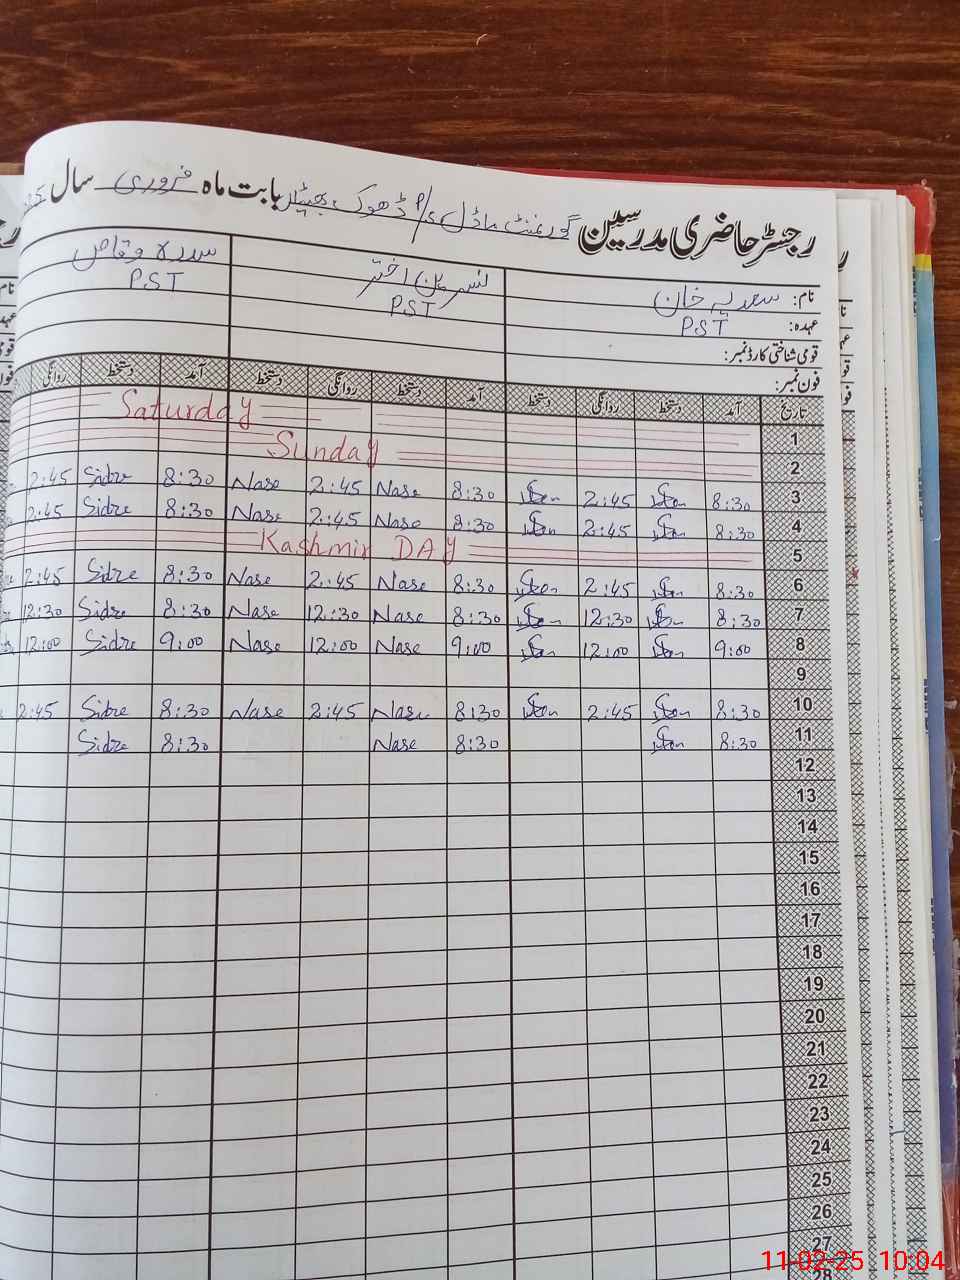 رجسٹر حاضری مدرسین گورنمنٹ ماڈل p/s ڈھوک بھٹیاں بابت ماہ فروری سال
نام: سعدیہ خان نسرین اختر سدرہ وقاص
عہدہ: PST PST PST
قومی شناختی کارڈ نمبر:
فون نمبر:
تاریخ آمد دستخط روانگی دستخط آمد دستخط روانگی دستخط آمد دستخط روانگی
1 Saturday
2 Sunday
3 8:30 2:45 8:30 Nase 2:45 Nase 8:30 Sidre 2:45
4 8:30 2:45 8:30 Nase 2:45 Nase 8:30 Sidre 2:45
5 Kashmir DAY
6 8:30 2:45 8:30 Nase 2:45 Nase 8:30 Sidre 2:45
7 8:30 12:30 8:30 Nase 12:30 Nase 8:30 Sidre 12:30
8 9:00 12:00 9:00 Nase 12:00 Nase 9:00 Sidre 12:00
9
10 8:30 2:45 8:30 Nase 2:45 Nase 8:30 Sidre 2:45
11 8:30 8:30 Nase 8:30 Sidre
12
13
14
15
16
17
18
19
20
21
22
23
24
25
26
27
28
11-02-25 10:04